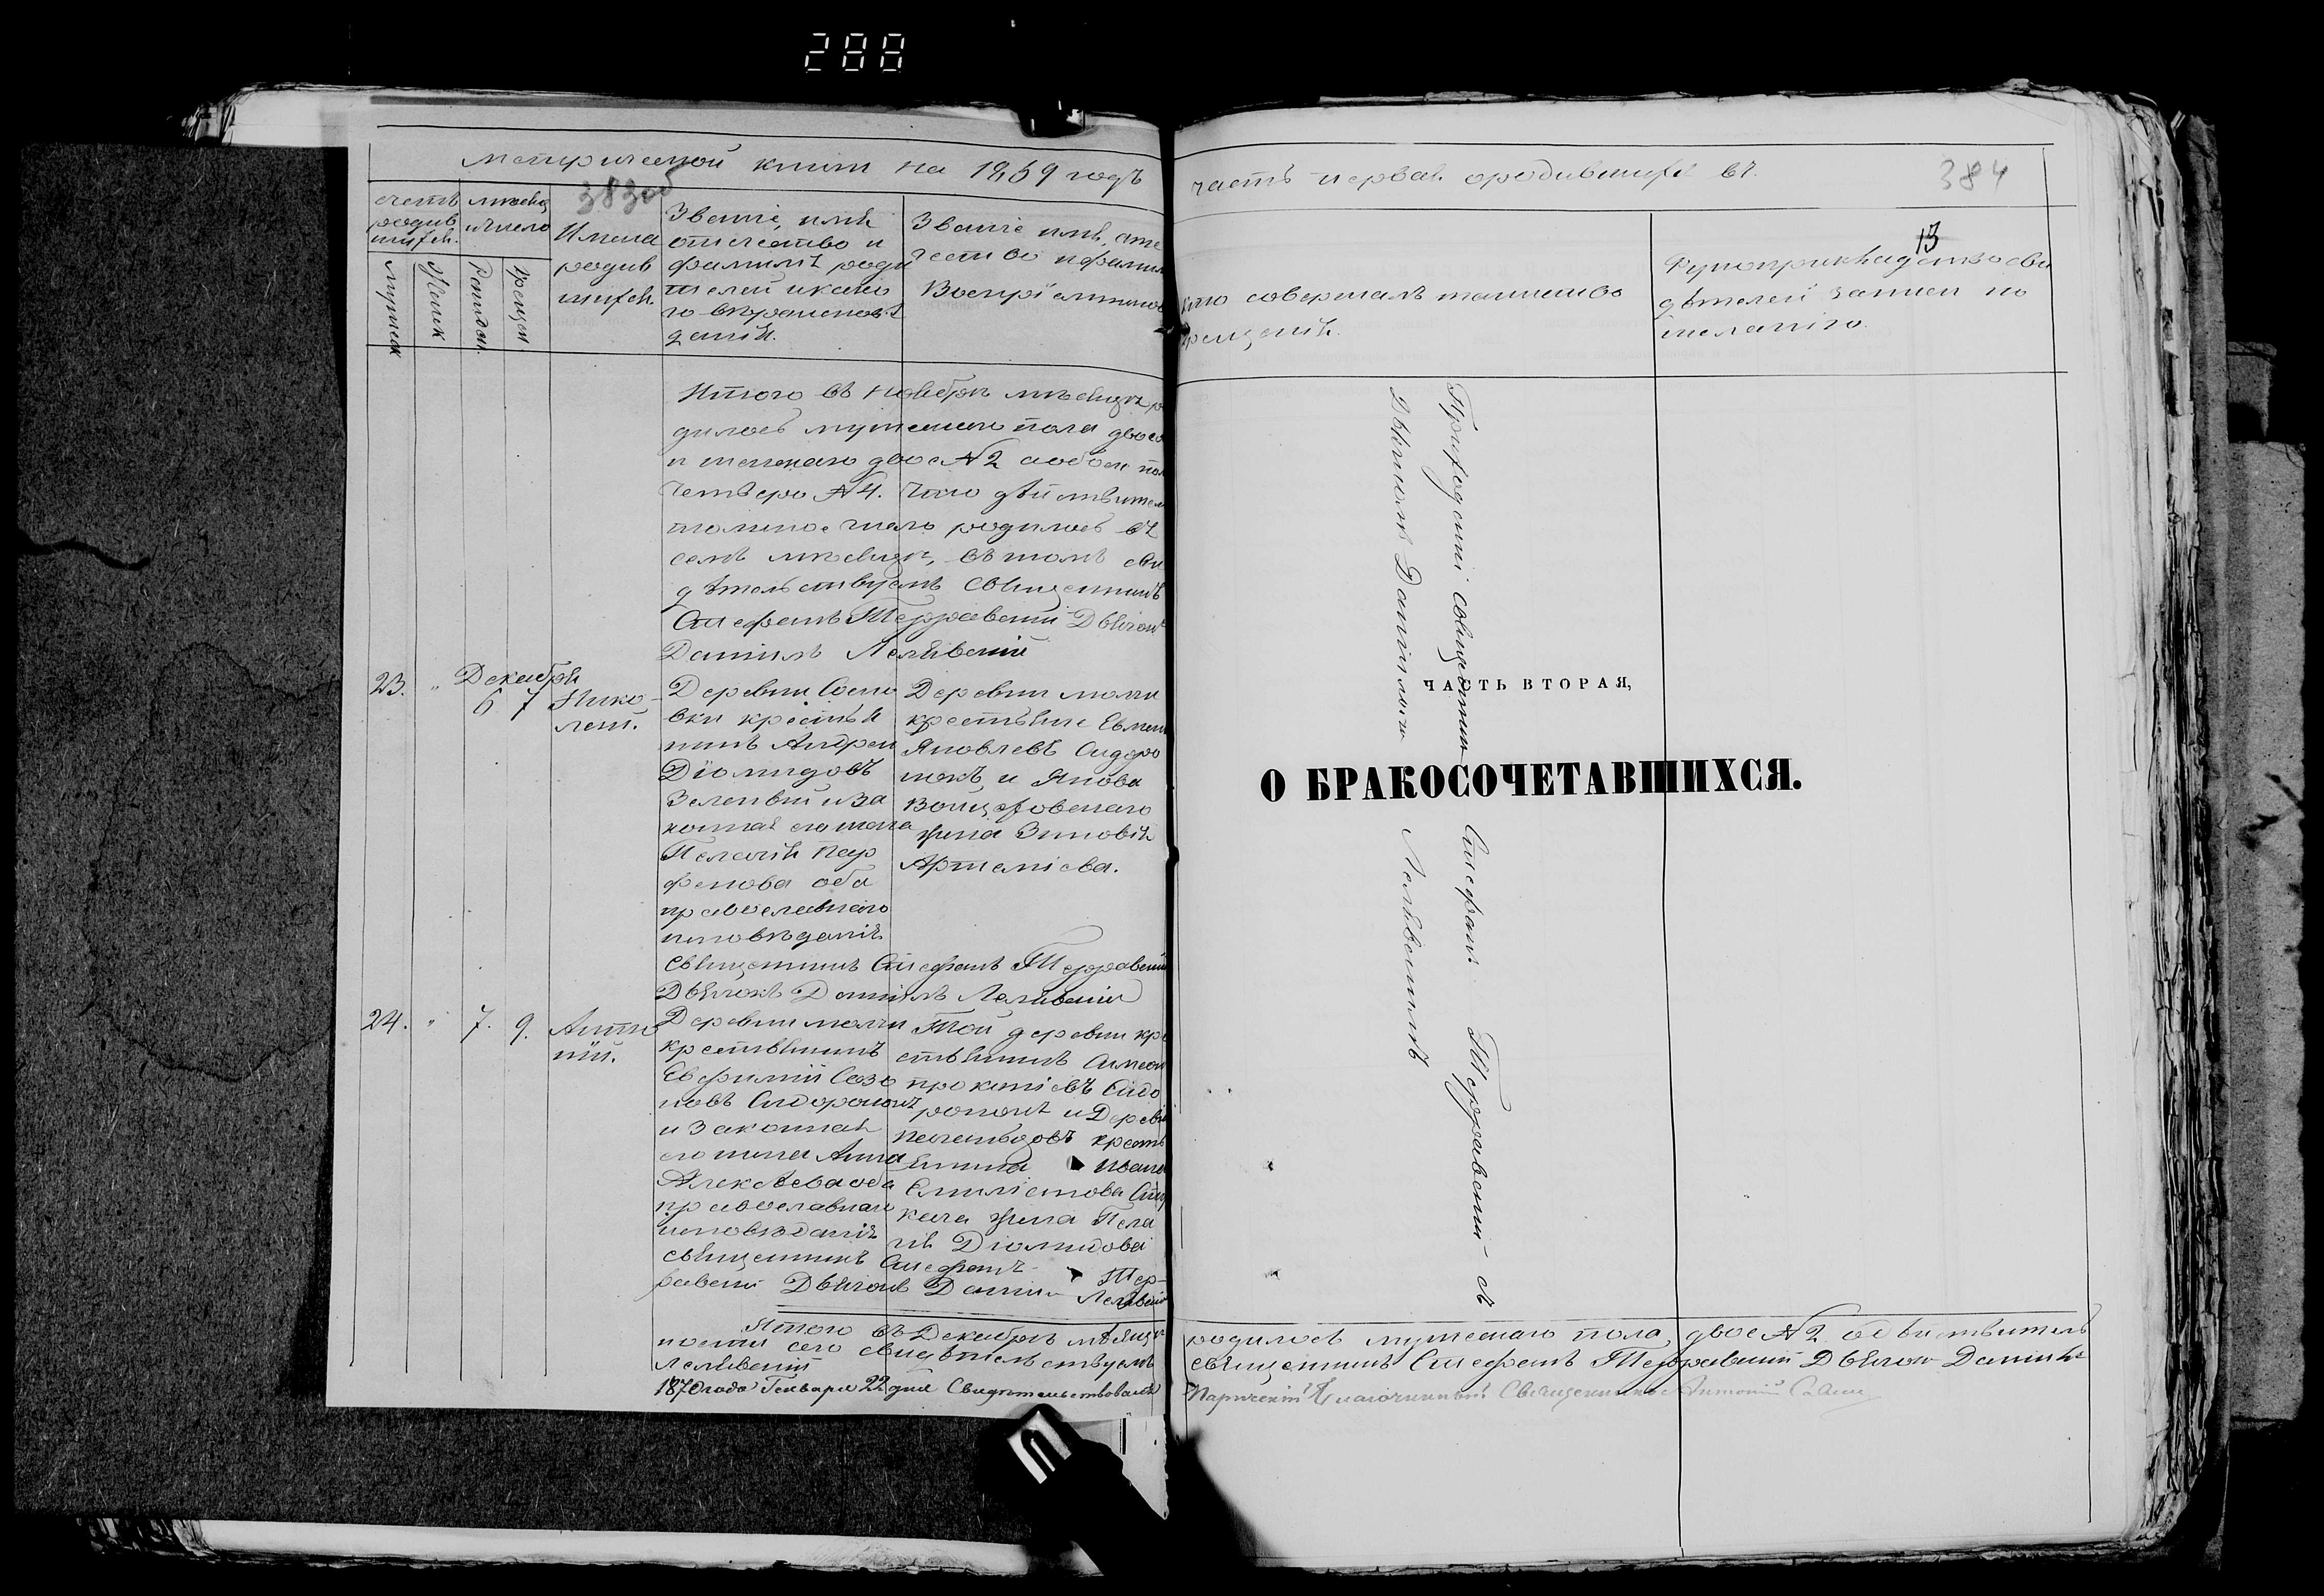 288
Метрической книги на 1869 годъ
383об
счетъ
родив
шихся.
мѣсяц
и число
Мужеск
Женск
Рожден.
Крещен
Имена
родив
шихся.
Званіе, имя
отчество и
фамилія роди
телей и како
го вѣроисповѣ
данія.
Званіе имя, отче
ство и фамил
Воспріемников
Итого въ ноябрѣ мѣсяцѣ ро
дилось мужескаго пола двое
и женскаго двое №2 а обоего пол
четверо №4. Что дѣйствител
толикое число родилось въ
семъ мѣсяцѣ, въ томъ сви
дѣтельствуемъ Священникъ
Стефанъ Терравскій Дьячокъ
Даніилъ Лелявскій
Декабря
23. " 6 7 Нико-
лай.
Деревни Сосно
вки крестья
нинъ Андрей
Діомидовъ
Зеленвый и за
конная его жена
Пелагія пар
фенова оба
православнаго
исповѣданія
Деревни
крестьяне
Яковлевъ Сидоро
нокъ и Якова
жена Зиновія
Артеміева.
Священникъ Стефанъ Терравскій
Дьячокъ Даніилъ Лелявскій
24. " 7. 9. Анто
ній.
Деревни
крестьянинъ
Евфимій Созо
новъ Сидоронокъ
и Законная
его жена Анна
Алексѣева оба
православнаго
исповѣданія
Той деревни кре
стьянинъ Симеон
прокопіевъ Сидо
ронокъ и Деревни
крестья
янина Ивана
жена Пела
гія Діомидова
священникъ Стефанъ Тер-
равскій Дьячокъ Даніилъ Лелявскій
Итого въ Декабрѣ мѣсяцѣ
ности сего свидѣтельствуемъ
Лелявскій
1870 года Генваря 22 дня Свидѣтельствовалъ
часть первая о родившихся въ.
384
13
Кто совершалъ таинство
крещенія.
Рукоприкладство сви
дѣтелей записи по
желанію.
Приходскій священникъ Стефанъ Терравскій съ
Дьячкомъ Данииломъ Лелявскимъ
ЧАСТЬ ВТОРАЯ,
О БРАКОСОЧЕТАВШИХСЯ.
родилось мужескаго пола, двое №2. въ дѣйствитель
священникъ Стефанъ Терравскій Дьячок Даниилъ
Паричскій Благочинный Священникъ Антоній